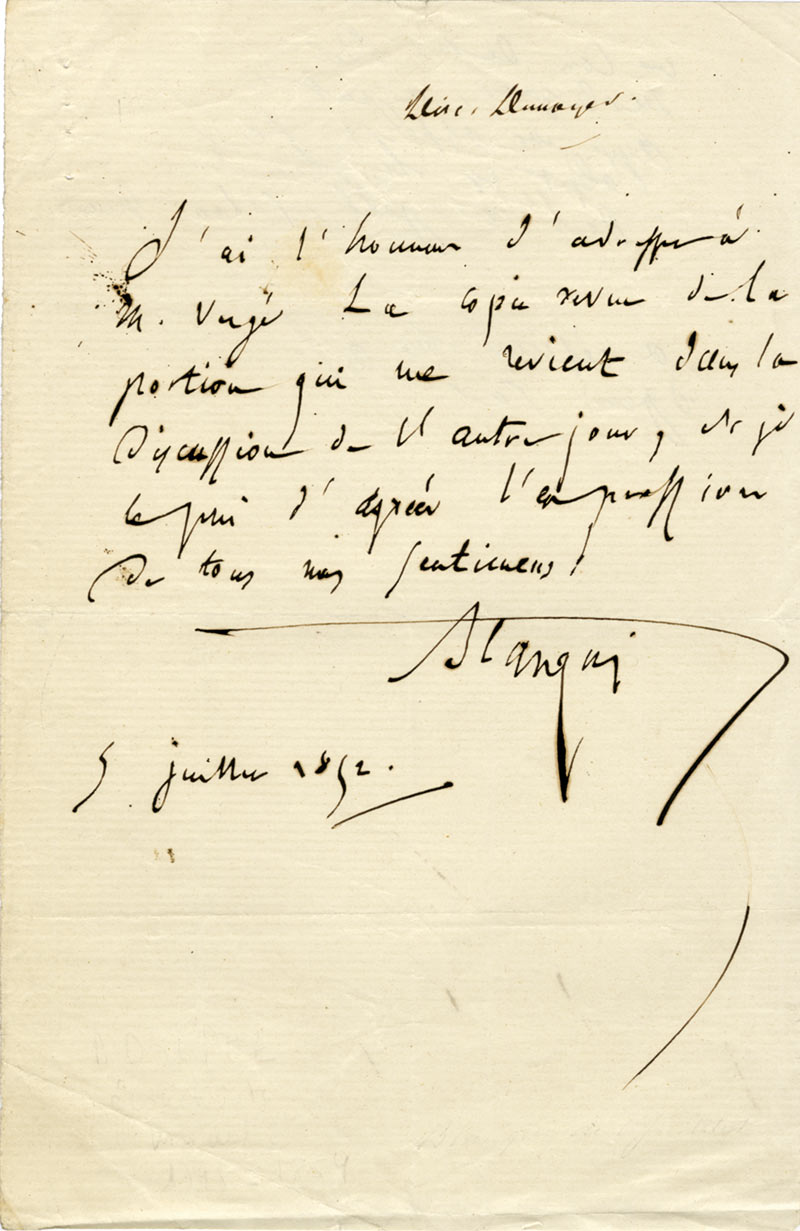 J'ai l'honneur d'adresser à
M. Vergé La copie revue de la
portion qui me revient dans la
Discussion de l'autre jour, et je
le prie d'agréer l'expression
De tous mes sentimens.
Blanqui
5 juillet 1852.